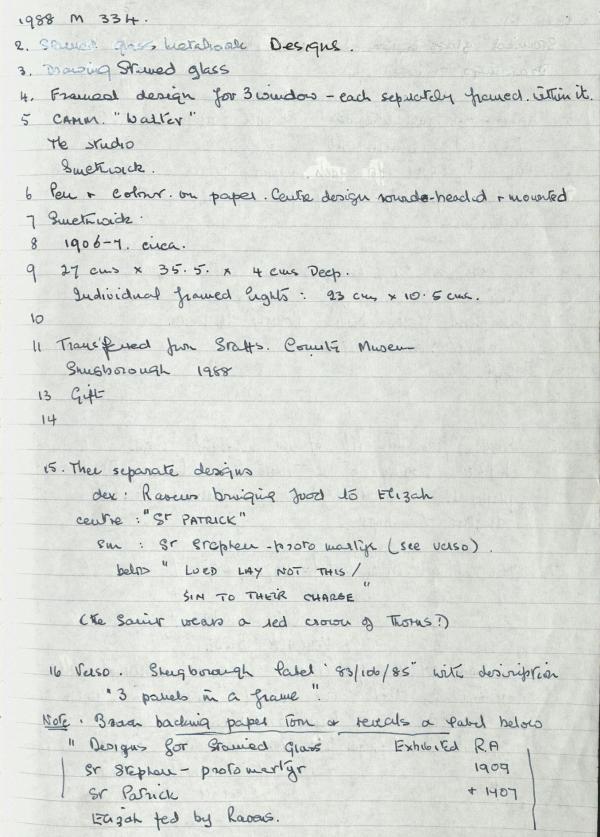 1988 M 334.
2. Stained glass, Designs.
3. Drawing Stained glass
4. Framed design for 3 window - each separately framed. within it.
5 CAMM. "Walter"
The studio
Smethwick.
6 Pen + colour. on paper. Centre design round-headed + mounted
7 Smethwick.
8 1906-7. circa.
9 27 cms × 35.5. × 4 cms Deep.
Individual framed lights : 23 cms × 10.5 cms.
10
11 Transferred from Staffs. County Museum
Shugborough 1988
13 Gift
14
15. Three separate designs
dex : Ravens bringing food to Elijah
centre : "St PATRICK"
sin : St Stephen - proto martyr (see verso).
below "LORD LAY NOT THIS /
SIN TO THEIR CHARGE"
(The Saint wears a red crown of Thorns?)
16 Verso. Shugborough label "83/106/85" with description
"3 panels in a frame".
Note : Brown backing paper torn or reveals a label below
" Designs for Stained Glass Exhibited R.A
St Stephen - protomartyr 1909
St Patrick + 1907
Elijah fed by Ravens.